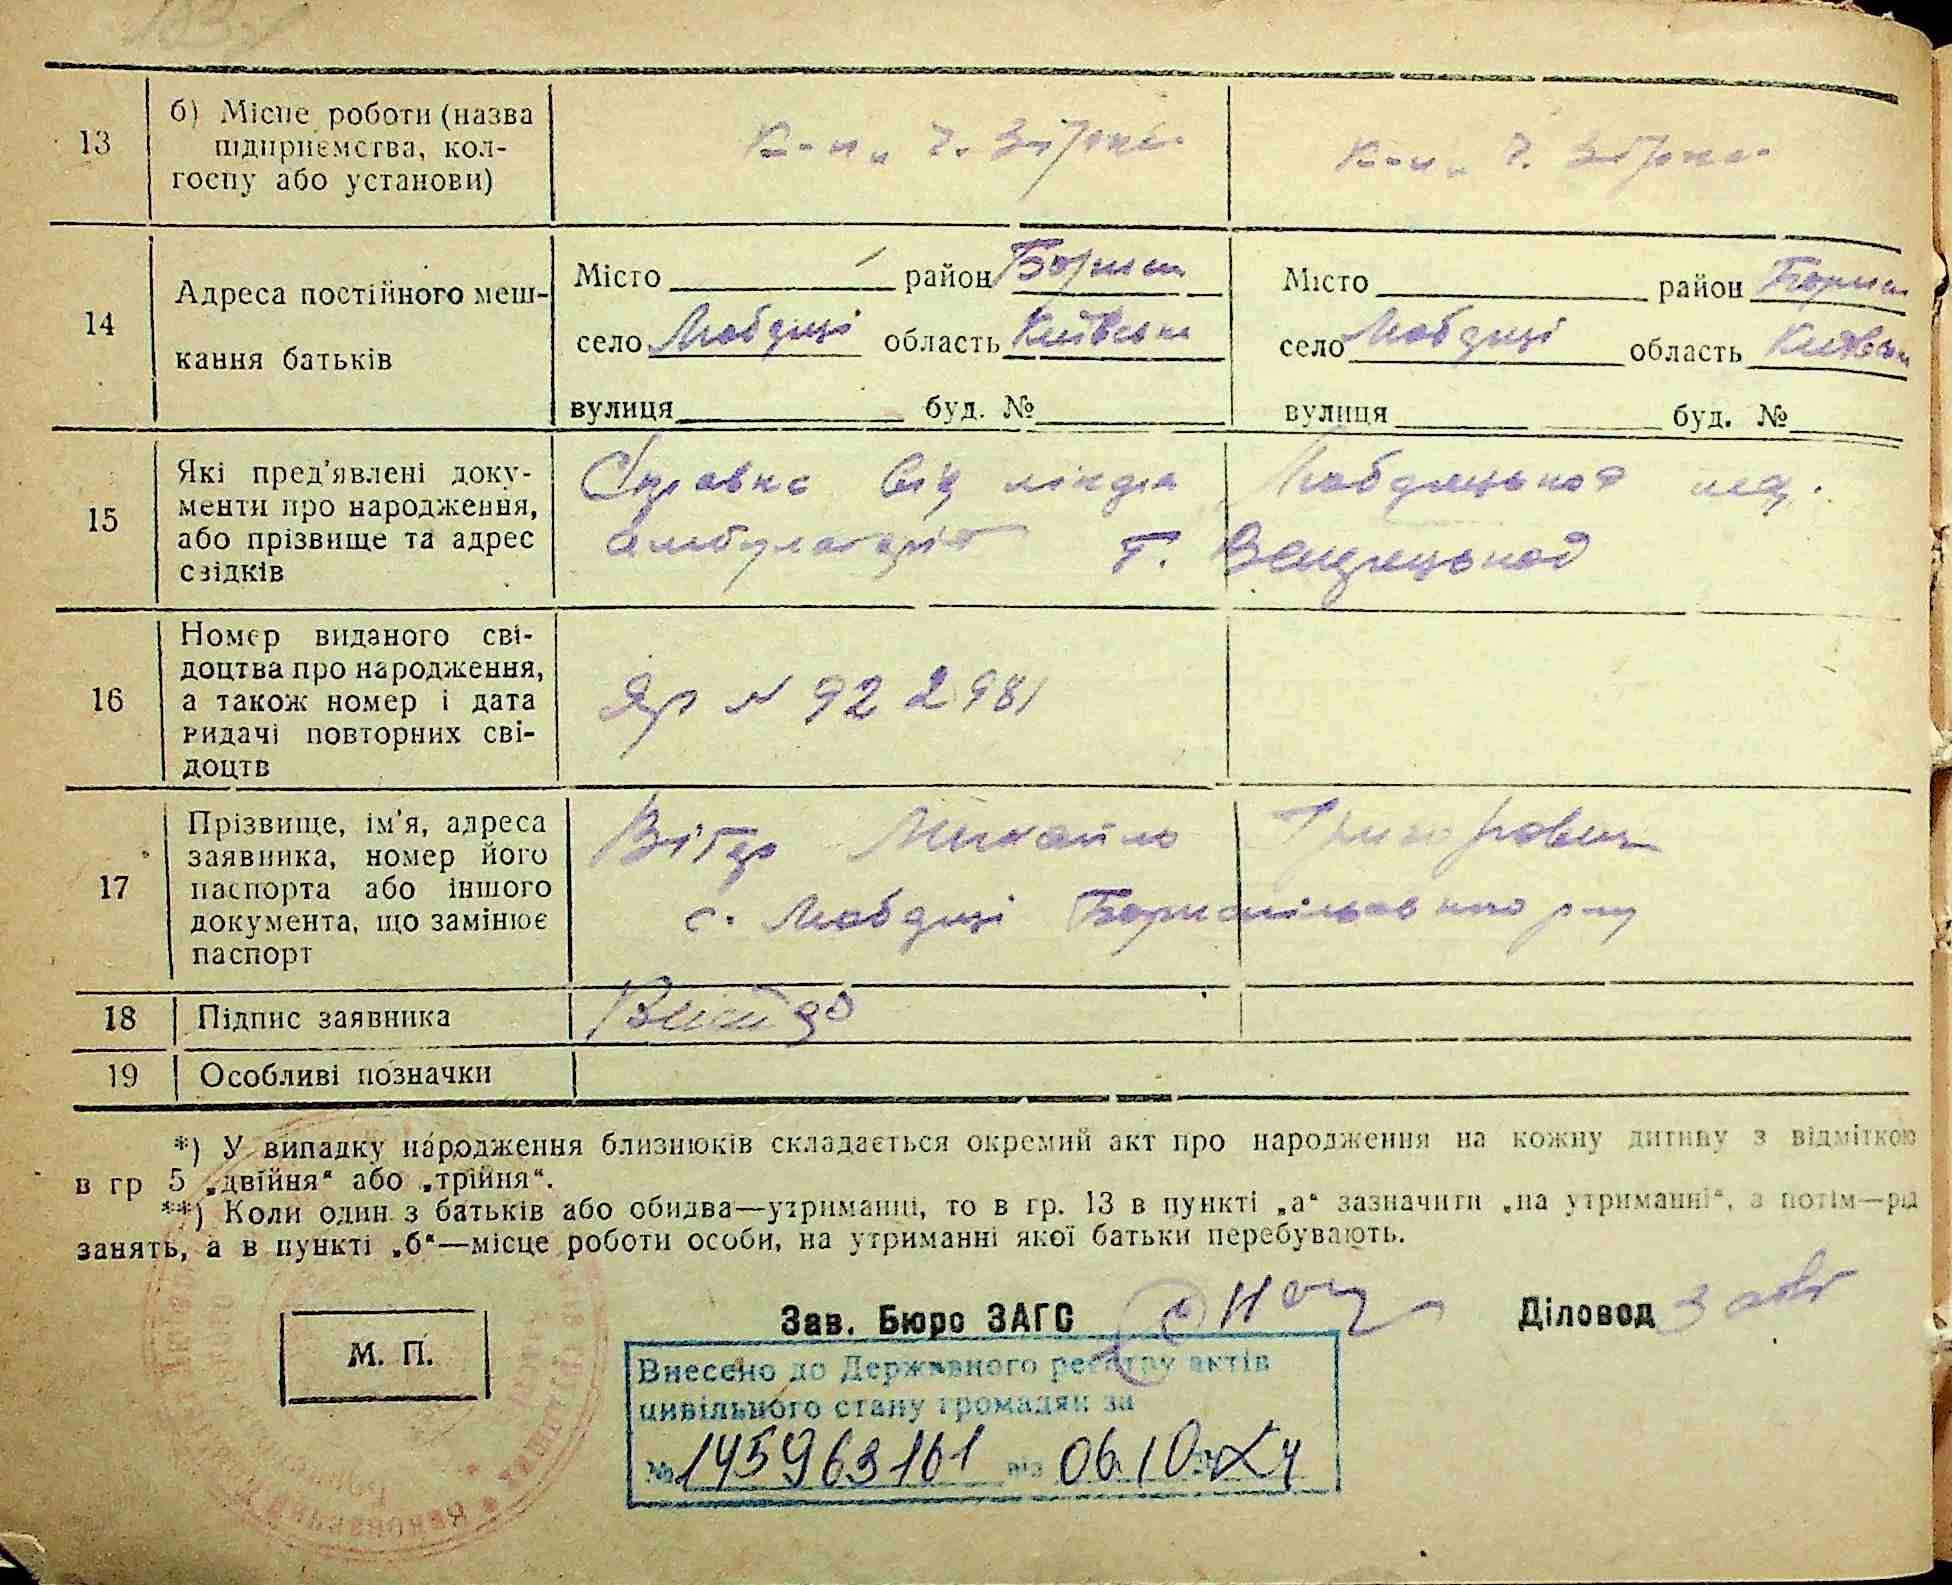 13
б) Місце роботи (назва
підприємства, кол-
госпу або установи)
К-п „Ч. Зірка"
К-п „Ч. Зірка"
14
Адреса постійного меш-
кання батьків
Місто район Борисп
село Любарці область Київськ
вулиця буд. №
Місто район Борисп
село Любарці область Київськ
вулиця буд. №
15
Які пред'явлені доку-
менти про народження,
або прізвище та адрес
свідків
Справка від
амбулаторії
16
Номер виданого сві-
доцтва про народження,
а також номер і дата
видачі повторних сві-
доцтв
ЯР № 922981
17
Прізвище, ім'я, адреса
заявника, номер його
паспорта або іншого
документа, що замінює
паспорт
Михайло Григорович
с. Любарці Бориспільського р-ну
18
Підпис заявника
19
Особливі позначки
*) У випадку народження близнюків складається окремий акт про народження на кожну дитину з відміткою
в гр 5 „двійня" або „трійня".
**) Коли один з батьків або обидва—утриманці, то в гр. 13 в пункті „а" зазначити „на утриманні", а потім—рід
занять, а в пункті „б"—місце роботи особи, на утриманні якої батьки перебувають.
М. П.
Зав. Бюро ЗАГС
Діловод
Внесено до Державного реєстру актів
цивільного стану громадян за
№ 145963161 від 06.10.